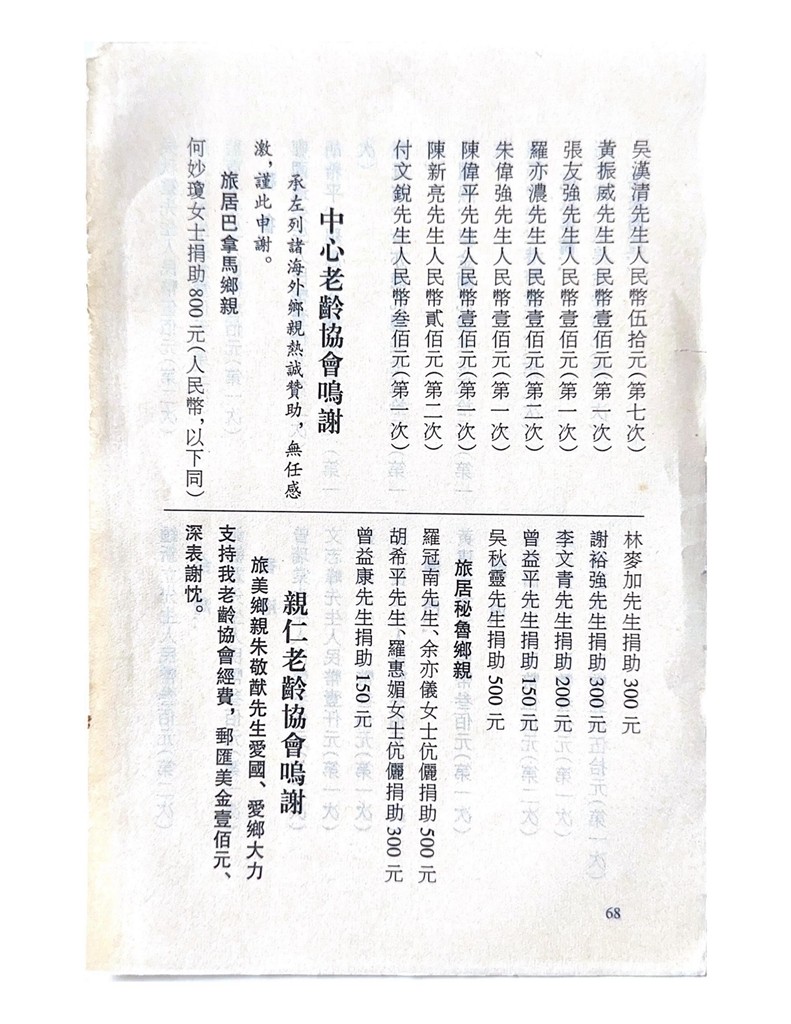 吳漢清先生人民幣伍拾元(第七次)
黃振威先生人民幣壹佰元(第一次)
張友強先生人民幣壹佰元(第一次)
羅亦濃先生人民幣壹佰元(第二次)
朱偉強先生人民幣壹佰元(第一次)
陳偉平先生人民幣壹佰元(第一次)
陳新亮先生人民幣貳佰元(第二次)
付文銳先生人民幣叁佰元(第一次)
中心老齡協會鳴謝
承左列諸海外鄉親熱誠贊助，無任感
激，謹此申謝。
旅居巴拿馬鄉親
何妙瓊女士捐助800元(人民幣，以下同)
林麥加先生捐助300元
謝裕強先生捐助300元
李文青先生捐助200元
曾益平先生捐助150元
吳秋靈先生捐助500元
旅居秘魯鄉親
羅冠南先生、余亦儀女士伉儷捐助500元
胡希平先生、羅惠媚女士伉儷捐助300元
曾益康先生捐助150元
親仁老齡協會鳴謝
旅美鄉親朱敬猷先生愛國、愛鄉大力
支持我老齡協會經費，郵匯美金壹佰元、
深表謝忱。
68